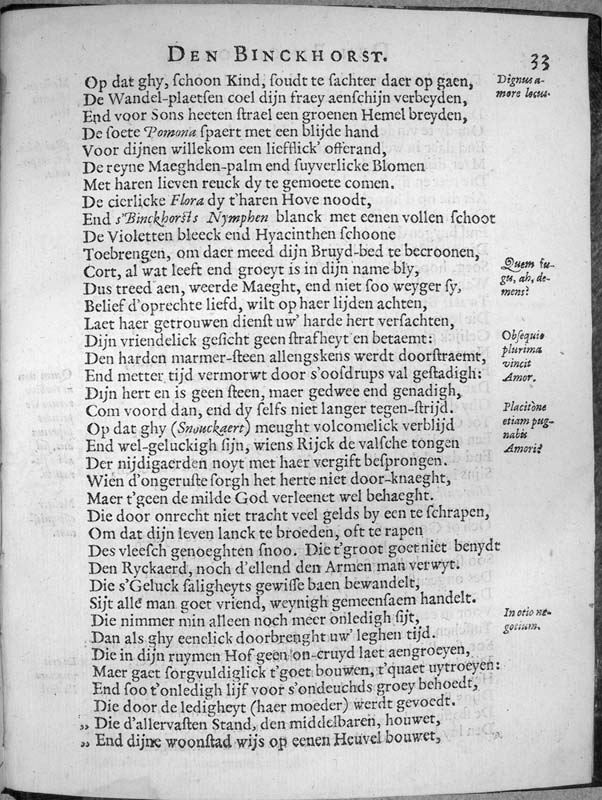 DEN BINCKHORST. 33
Op dat ghy, ſchoon Kind, ſoudt te ſachter daer op gaen,
De Wandel-plaetſen coel dijn fraey aenſchijn verbeyden,
End voor Sons heeten ſtrael een groenen Hemel breyden,
De ſoete Pomona ſpaert met een blijde hand
Voor dijnen willekom een liefflick' offerand,
De reyne Maeghden-palm end ſuyverlicke Blomen
Met haren lieven reuck dy te gemoete comen.
De cierlicke Flora dy t'haren Hove noodt,
End s'Binckhorſts Nymphen blanck met eenen vollen ſchoot
De Violetten bleeck end Hyacinthen ſchoone
Toebrengen, om daer meed dijn Bruyd-bed te becroonen,
Cort, al wat leeft end groeyt is in dijn name bly,
Dus treed aen, weerde Maeght, end niet ſoo weyger ſy,
Belief d'oprechte liefd, wilt op haer lijden achten,
Laet haer getrouwen dienſt uw' harde hert verſachten,
Dijn vriendelick geſicht geen ſtrafheyt en betaemt:
Den harden marmer-ſteen allengskens werdt doorſtraemt,
End metter tijd vermorwt door s'ooſdrups val geſtadigh:
Dijn hert en is geen ſteen, maer gedwee end genadigh,
Com voord dan, end dy ſelfs niet langer tegen-ſtrijd.
Op dat ghy (Snouckaert) meught volcomelick verblijd
End wel-geluckigh ſijn, wiens Rijck de valſche tongen
Der nijdigaerden noyt met haer vergift beſprongen.
Wien d'ongeruſte ſorgh het herte niet door-knaeght,
Maer t'geen de milde God verleenet wel behaeght.
Die door onrecht niet tracht veel gelds by een te ſchrapen,
Om dat dijn leven lanck te broeden, oft te rapen
Des vleeſch genoeghten ſnoo. Die t'groot goet niet benydt
Den Ryckaerd, noch d'ellend den Armen man verwyt.
Die s'Geluck ſaligheyts gewiſſe baen bewandelt,
Sijt alle man goet vriend, weynigh gemeenſaem handelt.
Die nimmer min alleen noch meer onledigh ſijt,
Dan als ghy eenelick doorbrenght uw' leghen tijd.
Die in dijn ruymen Hof geen on-cruyd laet aengroeyen,
Maer gaet ſorgvuldiglick t'goet bouwen, t'quaet uytroeyen:
End ſoo t'onledigh lijf voor s'ondeuchds groey behoedt,
Die door de ledigheyt (haer moeder) werdt gevoedt.
„ Die d'allervaſten Stand, den middelbaren, houwet,
„ End dijne woonſtad wijs op eenen Heuvel bouwet,
Dignus a-
more locus.
Quem fu-
gis, ah, de-
mens?
Obſequio
plurima
vincit
Amor.
Placitône
etiam pug-
nabis
Amori?
In otio ne-
gotium.
Den